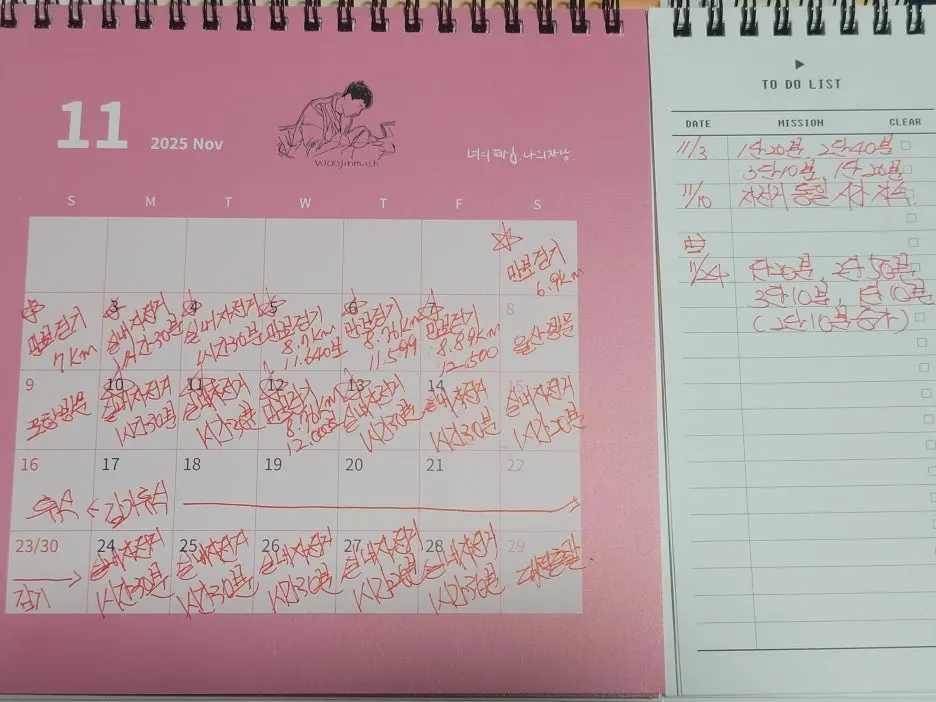 11
2025 Nov
woojinmuith
S M T W T F S
만보걷기
6.9km
만보걷기
7km
3
실내자전거
1시간30분
4
실내자전거
1시간30분
5
만보걷기
8.7km
11.640보
6
만보걷기
8.70km
11.599
7
만보걷기
8.89km
12.500
8
울산방문
9
포항방문
10
실내자전거
1시간30분
11
실내자전거
1시간30분
12
만보걷기
12.000보
13
실내자전거
1시간30분
14
실내자전거
1시간30분
15
실내자전거
1시간20분
16
휴식
17
감기휴식
18
19
20
21
22
23/30
감기
24
실내자전거
1시간30분
25
실내자전거
1시간30분
26
실내자전거
1시간30분
27
실내자전거
28
실내자전거
1시간30분
29
TO DO LIST
DATE MISSION CLEAR
11/3 1단20분, 2단40분
3단10분, 1단20분
11/10 자전거 동일 시간 지속.
11/24 1단20분, 2단50분
3단10분, 1단10분
(2단10분증가)